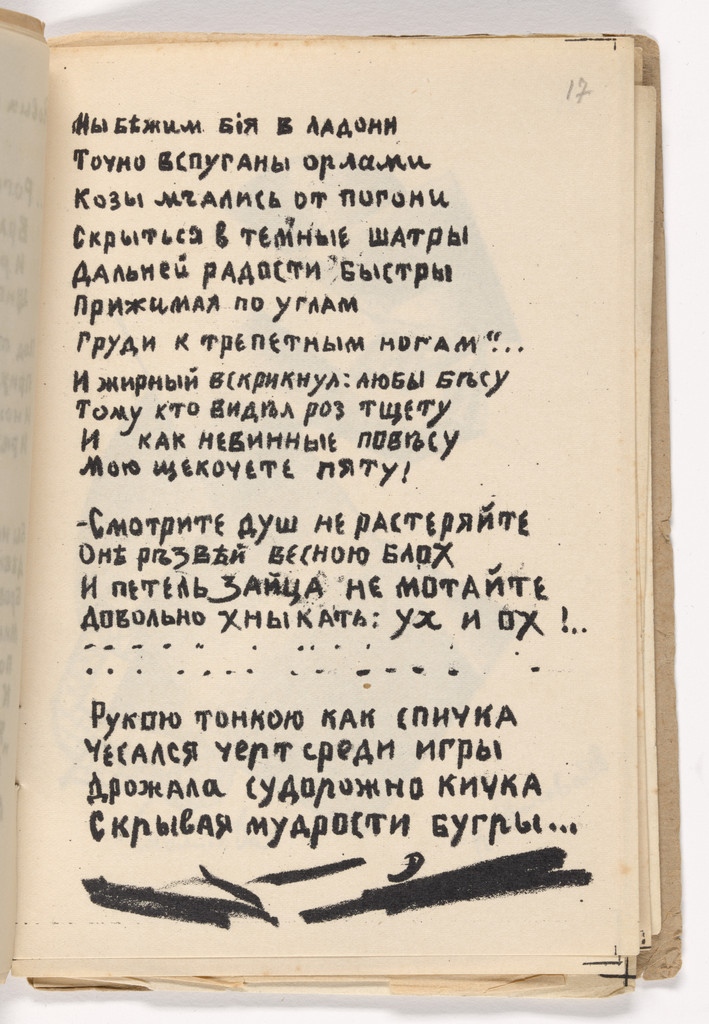 17
Мы бѣжим бія в ладони
Точно вспуганы орлами
Козы мчались от погони
Скрыться в темные шатры
Дальней радости быстры
Прижимая по углам
Груди к трепетным ногам"...
И жирный вскрикнул: любы бѣсу
Тому кто видѣл роз тщету
И как невинные повѣсу
Мою щекочете пяту!
-Смотрите душ не растеряйте
Онѣ рѣзвѣй весною блох
И петель зайца не мотайте
Довольно хныкать: ух и ох !..
Рукою тонкою как спичка
Чесался черт среди игры
Дрожала судорожно кичка
Скрывая мудрости бугры...